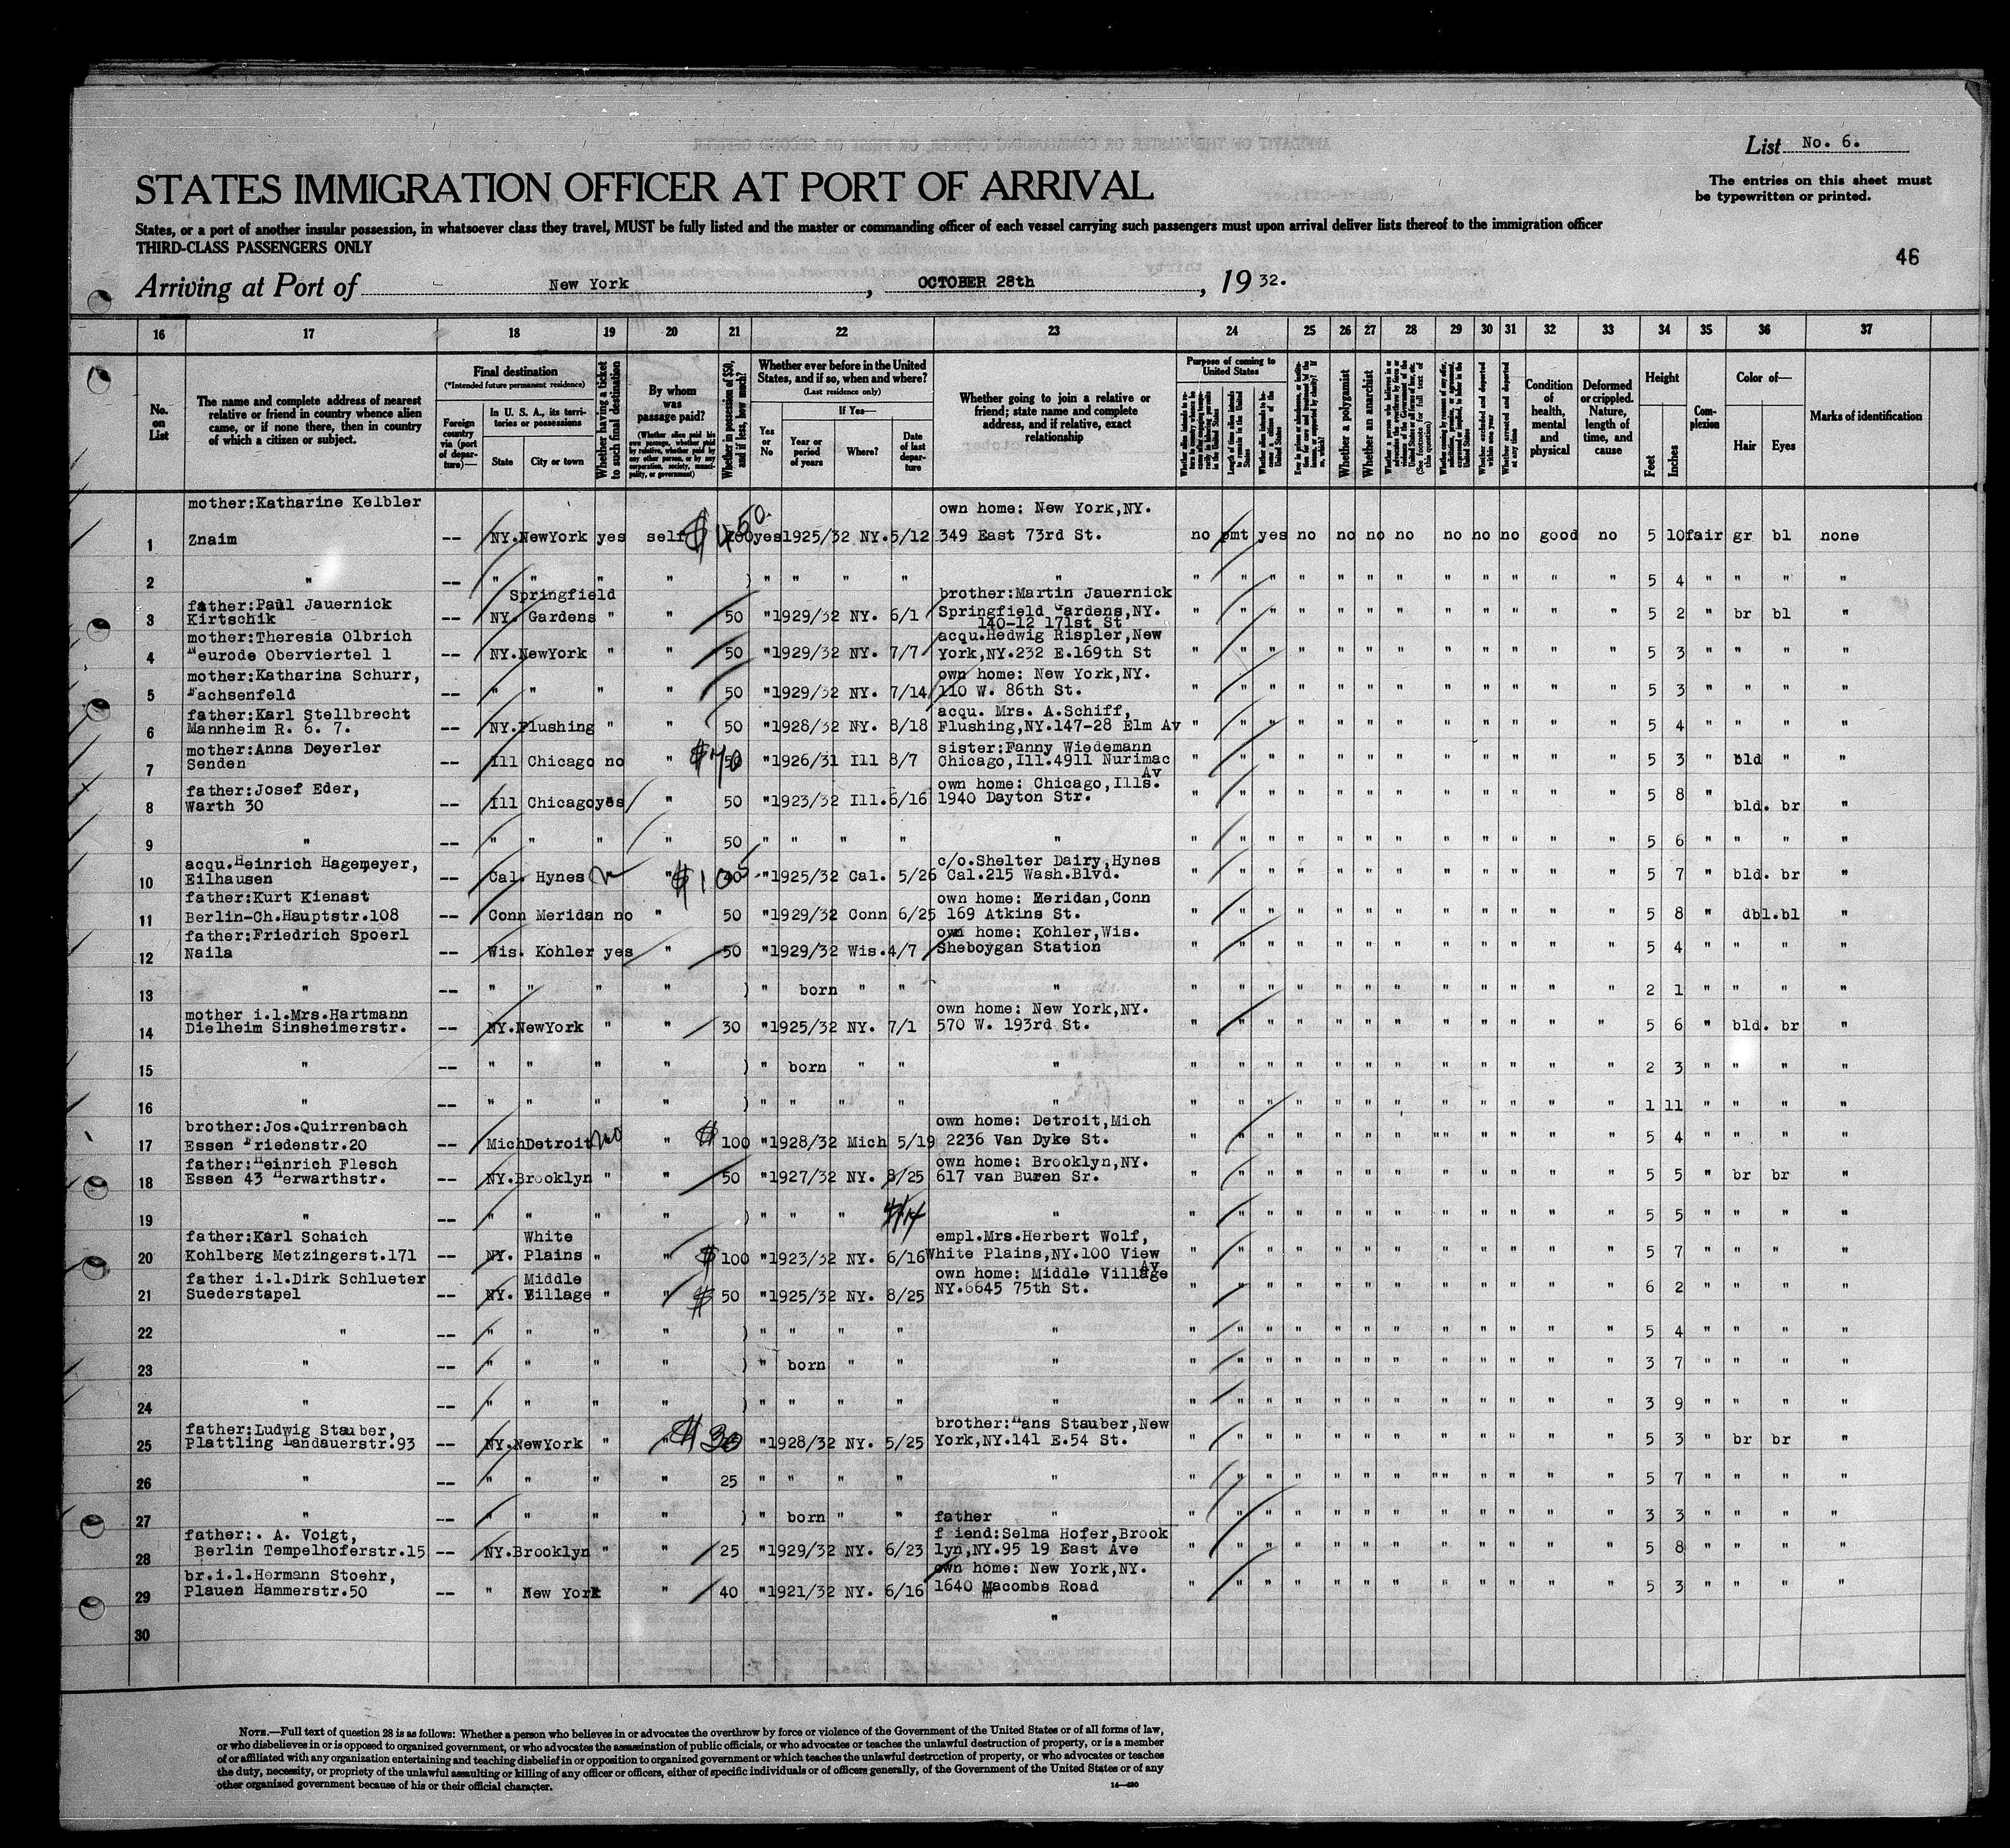 List No. 6.
STATES IMMIGRATION OFFICER AT PORT OF ARRIVAL
The entries on this sheet must
be typewritten or printed.
States, or a port of another insular possession, in whatsoever class they travel, MUST be fully listed and the master or commanding officer of each vessel carrying such passengers must upon arrival deliver lists thereof to the immigration officer
THIRD-CLASS PASSENGERS ONLY
46
Arriving at Port of New York, OCTOBER 28th, 1932.
16 17 18 19 20 21 22 23 24 25 26 27 28 29 30 31 32 33 34 35 36 37
No. on List
The name and complete address of nearest relative or friend in country whence alien came, or if none there, then in country of which a citizen or subject.
Final destination
(*Intended future permanent residence)
Foreign country via (port of departure)—
In U. S. A., its territories or possessions
State
City or town
Whether having a ticket to such final destination
By whom was passage paid?
(Whether alien paid his own passage, whether paid by relative, whether paid by any other person, or by any corporation, society, municipality, or government)
Whether in possession of $50, and if less, how much?
Whether ever before in the United States, and if so, when and where?
(Last residence only)
If Yes—
Yes or No
Year or period of years
Where?
Date of last departure
Whether going to join a relative or friend; state name and complete address, and if relative, exact relationship
Purpose of coming to United States
Length of time alien intends to remain in the United States
Whether alien intends to become a citizen of the United States
Whether a polygamist
Whether an anarchist
Whether excluded and deported within one year
Whether arrested and deported at any time
Condition of health, mental and physical
Deformed or crippled. Nature, length of time, and cause
Height
Feet
Inches
Complexion
Color of—
Hair
Eyes
Marks of identification
mother:Katharine Kelbler own home: New York,NY.
1 Znaim -- NY.NewYork yes self $450. yes 1925/32 NY. 5/12 349 East 73rd St. no pmt yes no no no no no no no good no 5 10 fair gr bl none
2 " -- " " " " ) " " " " " " " " " " " " " " " " " 5 4 " " " "
Springfield brother:Martin Jauernick
father:Paul Jauernick Springfield Gardens,NY.
3 Kirtschik -- NY. Gardens " " 50 "1929/32 NY. 6/1 140-12 171st St " " " " " " " " " " " " 5 2 " br bl "
mother:Theresia Olbrich acqu.Hedwig Rispler,New
4 Neurode Oberviertel 1 -- NY.NewYork " " 50 "1929/32 NY. 7/7 York,NY.232 E.169th St " " " " " " " " " " " " 5 3 " " " "
mother:Katharina Schurr, own home: New York,NY.
5 achsenfeld -- " " " " 50 "1929/32 NY. 7/14 110 W. 86th St. " " " " " " " " " " " " 5 3 " " " "
father:Karl Stellbrecht acqu. Mrs. A.Schiff,
6 Mannheim R. 6. 7. -- NY.Flushing " " 50 "1928/32 NY. 8/18 Flushing,NY.147-28 Elm Av " " " " " " " " " " " " 5 4 " " " "
mother:Anna Deyerler sister:Fanny Wiedemann
7 Senden -- Ill Chicago no " $70 "1926/31 Ill 8/7 Chicago,Ill.4911 Nurimac Av " " " " " " " " " " " " 5 3 " bld " "
father:Josef Eder, own home: Chicago,Ills.
8 Warth 30 -- Ill Chicago yes " 50 "1923/32 Ill. 6/16 1940 Dayton Str. " " " " " " " " " " " " 5 8 " bld. br "
9 " -- " " " " 50 " " " " " " " " " " " " " " " " " 5 6 " " " "
acqu.Heinrich Hagemeyer, c/o.Shelter Dairy,Hynes
10 Eilhausen -- Cal. Hynes " $105 "1925/32 Cal. 5/26 Cal.215 Wash.Blvd. " " " " " " " " " " " " 5 7 " bld. br "
father:Kurt Kienast own home: Meridan,Conn
11 Berlin-Ch.Hauptstr.108 -- Conn Meridan no " 50 "1929/32 Conn 6/25 169 Atkins St. " " " " " " " " " " " " 5 8 " dbl.bl "
father:Friedrich Spoerl own home: Kohler,Wis.
12 Naila -- Wis. Kohler yes " 50 "1929/32 Wis. 4/7 Sheboygan Station " " " " " " " " " " " " 5 4 " " " "
13 " -- " " " " ) " born " " " " " " " " " " " " " " " 2 1 " " " "
mother i.l.Mrs.Hartmann own home: New York,NY.
14 Dielheim Sinsheimerstr. -- NY.NewYork " " 30 "1925/32 NY. 7/1 570 W. 193rd St. " " " " " " " " " " " " 5 6 " bld. br "
15 " -- " " " " ) " born " " " " " " " " " " " " " " " 2 3 " " " "
16 " -- " " " " ) " " " " " " " " " " " " " " " " " 1 11 " " " "
brother:Jos.Quirrenbach own home: Detroit,Mich
17 Essen Friedenstr.20 -- Mich Detroit no " $ 100 "1928/32 Mich 5/19 2236 Van Dyke St. " " " " " " " "" " " " " 5 4 " " " "
father:Heinrich Flesch own home: Brooklyn,NY.
18 Essen 43 Herwarthstr. -- NY.Brooklyn " " 50 "1927/32 NY. 8/25 617 van Buren Sr. " " " " " " " " " " " " 5 5 " br br "
19 " -- " " " " ) " " " " " " " " " " " " " " " " 5 5 " " " "
father:Karl Schaich White empl.Mrs.Herbert Wolf,
20 Kohlberg Metzingerst.171 -- NY. Plains " " $ 100 "1923/32 NY. 6/16 White Plains,NY.100 View Av " " " " " " " " " " " " 5 7 " " " "
father i.l.Dirk Schlueter Middle own home: Middle Village
21 Suederstapel -- NY. Village " " $ 50 "1925/32 NY. 8/25 NY.6645 75th St. " " " " " " " " " " " " 6 2 " " " "
22 " -- " " " " ) " " " " " " " " " " " " " " " " " 5 4 " " " "
23 " -- " " " " ) " born " " " " " " " " " " " " " " " 3 7 " " " "
24 " -- " " " " ) " " " " " " " " " " " " " " " " " 3 9 " " " "
father:Ludwig Stauber, brother:Hans Stauber,New
25 Plattling Landauerstr.93 -- NY.NewYork " " $30 "1928/32 NY. 5/25 York,NY.141 E.54 St. " " " " " " " " " " " " 5 3 " br br "
26 " -- " " " " 25 " " " " " " " " " " " " "" " " " " 5 7 " " " "
27 " -- " " " " ) " born " " father " " " " " " " " " " " " " 3 3 " " " "
father:. A. Voigt, f iend:Selma Hofer,Brook
28 Berlin Tempelhoferstr.15 -- NY.Brooklyn " " 25 "1929/32 NY. 6/23 lyn,NY.95 19 East Ave " " " " " " " " " " " " 5 8 " " " "
br.i.l.Hermann Stoehr, own home: New York,NY.
29 Plauen Hammerstr.50 -- " New York " 40 "1921/32 NY. 6/16 1640 Macombs Road " " " " " " " " " " " " 5 3 " " " "
30 "
NOTE.—Full text of question 28 is as follows: Whether a person who believes in or advocates the overthrow by force or violence of the Government of the United States or of all forms of law,
or who disbelieves in or is opposed to organized government, or who advocates the assassination of public officials, or who advocates or teaches the unlawful destruction of property, or is a member
of or affiliated with any organization entertaining and teaching disbelief in or opposition to organized government or which teaches the unlawful destruction of property, or who advocates or teaches
the duty, necessity, or propriety of the unlawful assaulting or killing of any officer or officers, either of specific individuals or of officers generally, of the Government of the United States or of any
other organized government because of his or their official character.